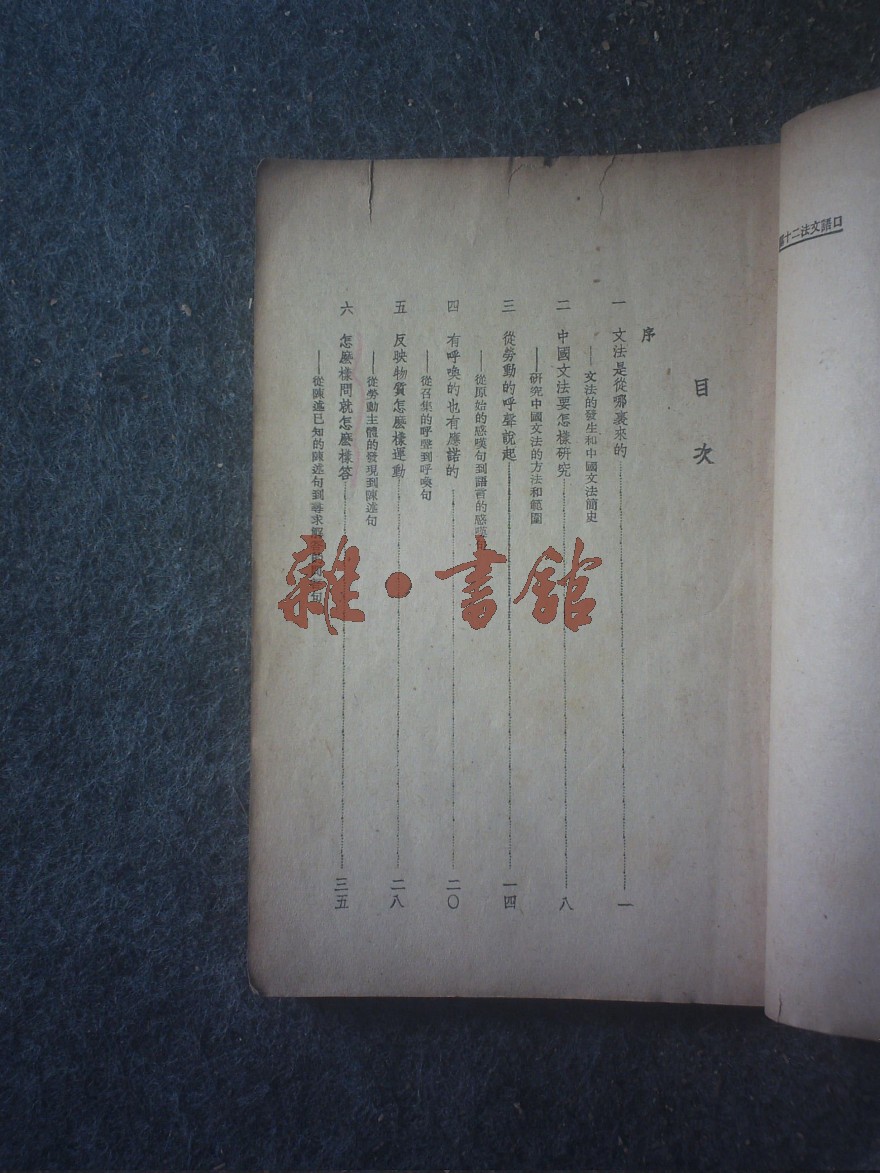 口語文法二十
目次
序
一 文法是從哪裏來的 一
——文法的發生和中國文法簡史
二 中國文法要怎樣研究 八
——研究中國文法的方法和範圍
三 從勞動的呼聲說起 一四
——從原始的感嘆句到語言的感嘆
四 有呼喚的也有應諾的 二〇
——從召集的呼聲到呼喚句
五 反映物質怎麽樣運動 二八
——從勞動主體的發現到陳述句
六 怎麽樣問就怎麽樣答 三五
——從陳述已知的陳述句到尋求解 句
雜·書館